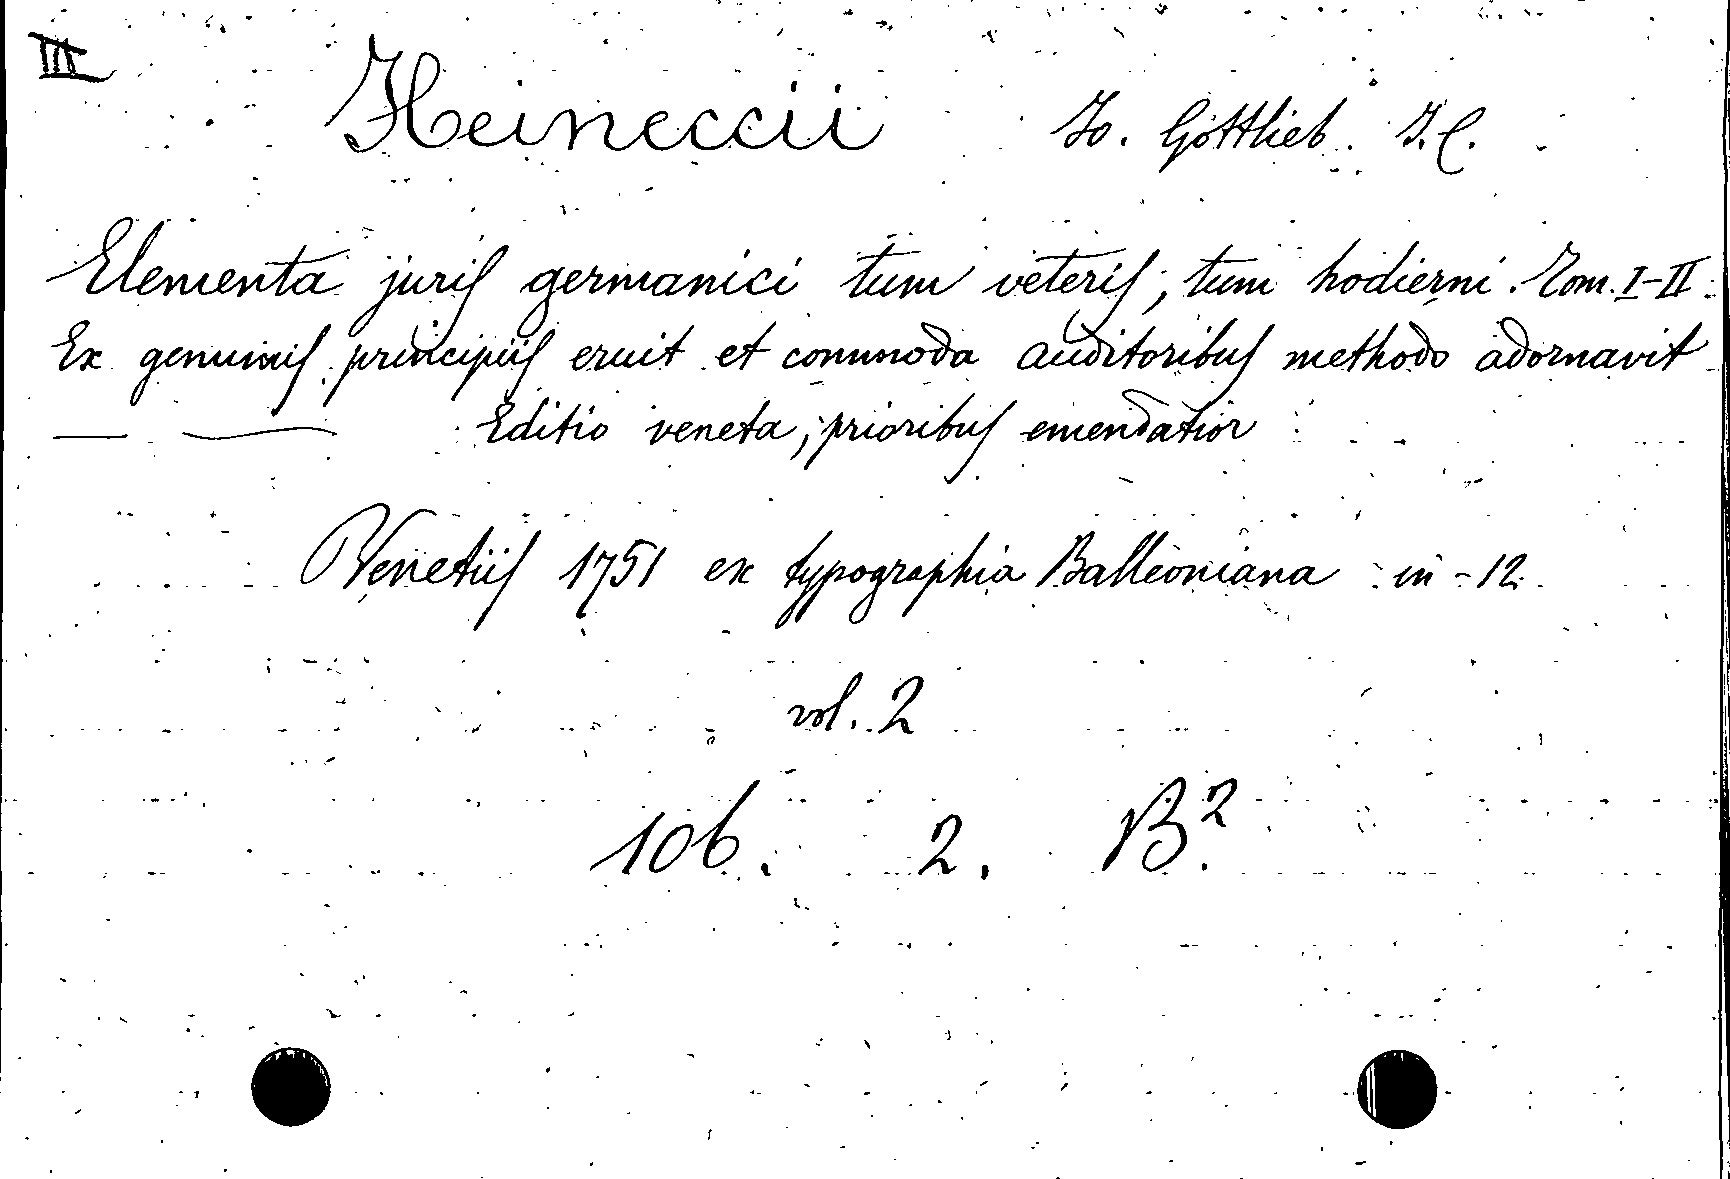 III
Heineccii Jo. Gottlieb. J.C.
Elementa juris germanici tum veteris, tum hodierni. Tom. I-II.
Ex genuinis principiis eruit et commoda auditoribus methodo adornavit
Editio veneta, prioribus emendatior
Venetiis 1751 ex typographia Balleoniana in-12.
vol. 2
106. 2. B².